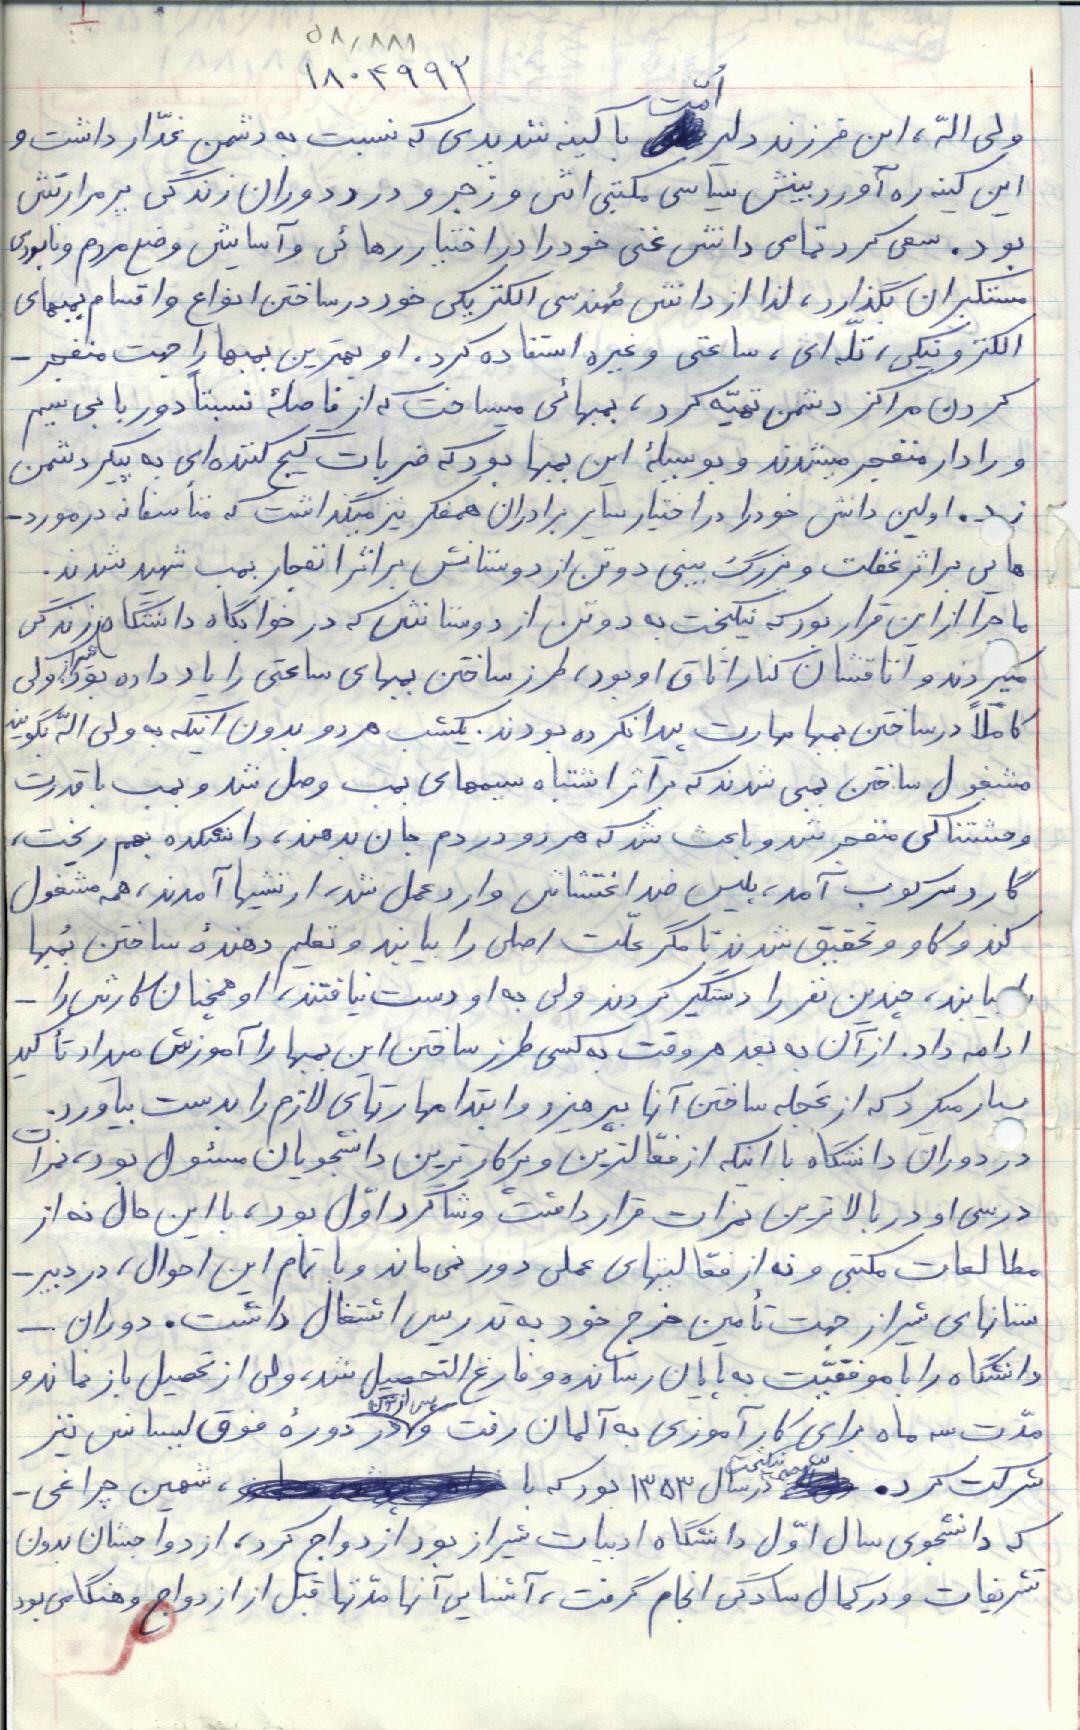 ۵۸٫۸۸۹
۱۸۰۴۹۹۲
ولی الله، این فرزند دلیر امّت با کینه شدیدی که نسبت به دشمن غدّار داشت و
این کینه ره آورد بینش سیاسی مکتبی اش و زجر و درد دوران زندگی پر مرارتش
بود. سعی کرد تمامی دانش غنی خود را در اختیار رهائی و آسایش وضع مردم و نابودی
مستکبران بگذارد، لذا از دانش مُهندسی الکتریکی خود در ساختن انواع و اقسام بمبهای
الکترونیکی، تلّه ای، ساعتی و غیره استفاده کرد. او بهترین بمبها را جهت منفجر -
کردن مراکز دشمن تهیّه کرد، بمبهائی میساخت که از فاصلهٔ نسبتاً دور با بی سیم
و رادار منفجر میشدند و بوسیلهٔ این بمبها بود که ضربات گیج کننده ای به پیکر دشمن
زد. او این دانش خود را در اختیار سایر برادران همفکر نیز میگذاشت که متأسفانه در مورد -
هایی بر اثر غفلت و بزرگ بینی دو تن از دوستانش بر اثر انفجار بمب شهید شدند.
ماجرا از این قرار بود که نیکبخت به دو تن از دوستانش که در خوابگاه دانشگاه شیراز زندگی
میکردند و اتاقشان کنار اتاق او بود، طرز ساختن بمبهای ساعتی را یاد داده بود ولی
کاملاً در ساختن بمبها مهارت پیدا نکرده بودند. یکشب هر دو بدون اینکه به ولی الله بگویند
مشغول ساختن بمبی شدند که بر اثر اشتباه سیمهای بمب وصل شد و بمب با قدرت
وحشتناکی منفجر شد و باعث شد که هر دو در دم جان بدهند، دانشکده بهم ریخت،
گارد سرکوب آمد، پلیس ضد اغتشاش وارد عمل شد، ارتشیها آمدند، همه مشغول
کند و کاو و تحقیق شدند تا مگر علّت اصلی را بیابند و تعلیم دهندهٔ ساختن بمُبها
را بیابند، چندین نفر را دستگیر کردند ولی به او دست نیافتند، او همچنان کارش را -
ادامه داد. از آن به بعد هر وقت به کسی طرز ساختن این بمبها را آموزش میداد تأکید
بسیار میکرد که از عجله ساختن آنها بپرهیزد و ابتدا مهارتهای لازم را بدست بیاورد.
در دوران دانشگاه با اینکه از فعّالترین و پرکارترین دانشجویان مسئول بود، نمرات
درسی او در بالاترین نمرات قرار داشت و شاگرد اوّل بود، با این حال نه از
مطالعات مکتبی و نه از فعّالیتهای عملی دور نمی ماند و با تمام این احوال، در دبیر -
ستانهای شیراز جهت تأمین خرج خود به تدریس اشتغال داشت. دوران -
دانشگاه را با موفقیّت به پایان رسانده و فارغ التحصیل شد، ولی از تحصیل باز نماند و
مدّت سه ماه برای کار آموزی به آلمان رفت و پس از آن در دورهٔ فوق لیسانس نیز
شرکت کرد. در سال ۱۳۵۳ بود که با ، شهین چراغی -
که دانشجوی سال اوّل دانشگاه ادبیات شیراز بود ازدواج کرد، ازدواجشان بدون
تشریفات و در کمال سادگی انجام گرفت، آشنایی آنها مدّتها قبل از ازدواج و هنگامی بود